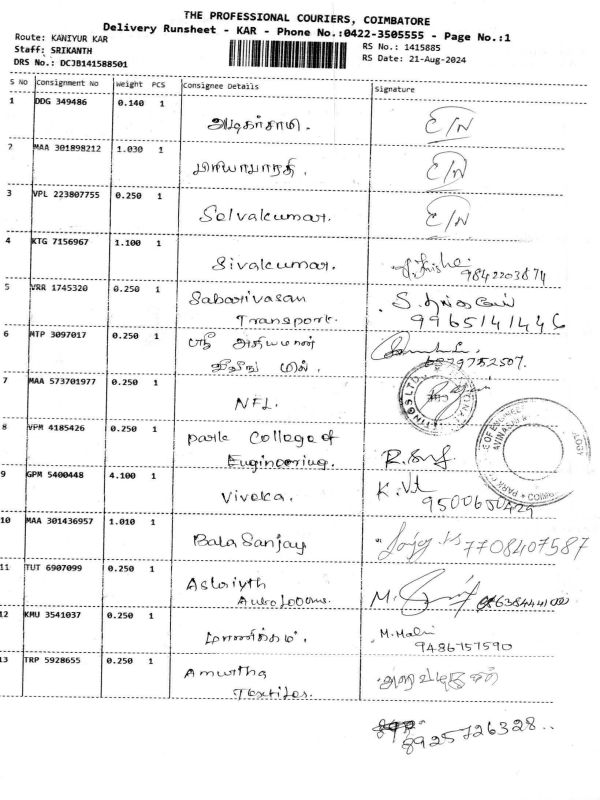 THE PROFESSIONAL COURIERS, COIMBATORE
Delivery Runsheet - KAR - Phone No.:0422-3505555 - Page No.:1
Route: KANIYUR KAR
Staff: SRIKANTH
DRS No.: DCJB141588501
RS No.: 1415885
RS Date: 21-Aug-2024
S No Consignment No Weight PCS Consignee Details Signature
1 DDG 349486 0.140 1 E/N
2 MAA 301898212 1.030 1 E/N
3 VPL 223807755 0.250 1 Selvakumar. E/N
4 KTG 7156967 1.100 1 Sivakumar.
9842203871
5 VRR 1745320 0.250 1 Sabarivasan
Transport. 9965141446
6 MTP 3097017 0.250 1 ஸ்ரீ அதியமான்
மில்.
7 MAA 573701977 0.250 1 NFL.
8 VPM 4185426 0.250 1 park College of
Engineering.
9 GPM 5400448 4.100 1 Viveka. K.
9500650429
10 MAA 301436957 1.010 1 Bala Sanjay 7708407587
11 TUT 6907099 0.250 1 M.
12 KMU 3541037 0.250 1 மாணிக்கம். M.
9486757590
13 TRP 5928655 0.250 1 Amurtha
Textiles.
8925726328